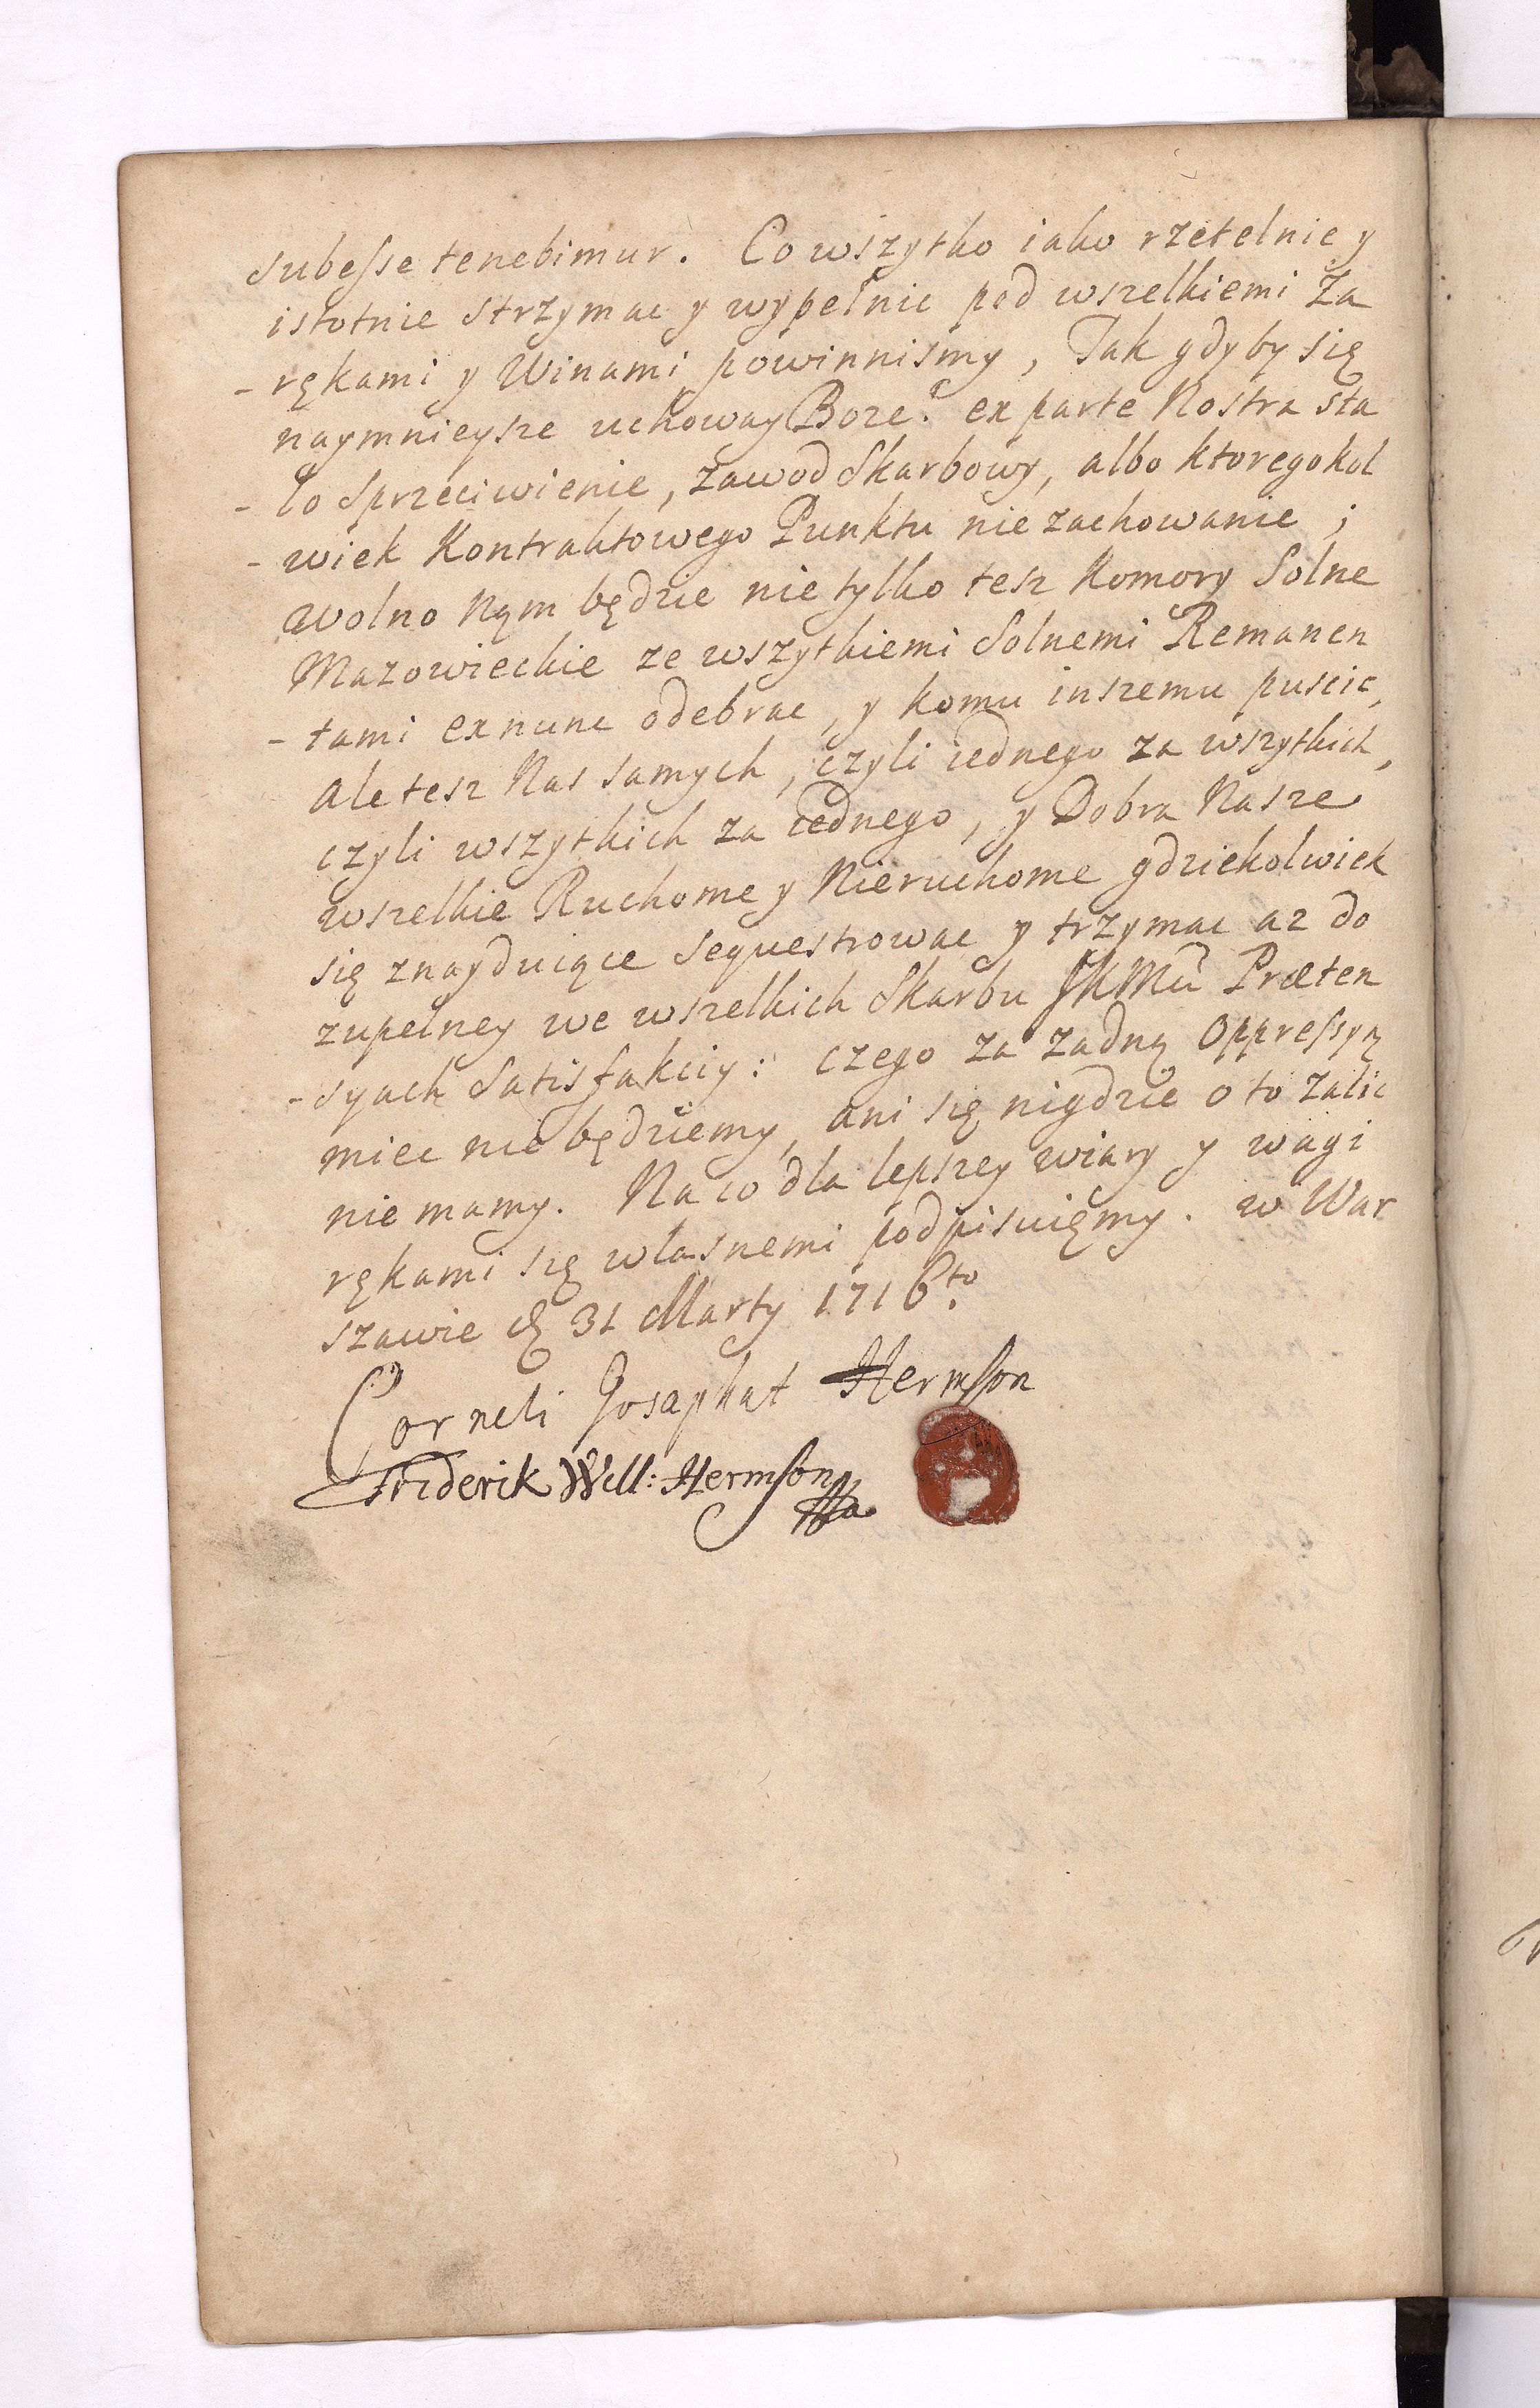 subesse tenebimur. Co wszytko iako rzetelnie y
istotnie strzymac y wypełnic pod wszelkiemi Za
- rękami y Winami powinnismy, Tak gdyby się
naymnieysze uchoway Boze! ex parte Nostra sta
- ło sprzeciwienie, zawod Skarbowy, albo ktoregokol
- wiek Kontraktowego Punktu niezachowanie;
Wolno Nąm będzie nie tylko tesz Komory Solne
Mazowieckie ze wszytkiemi Solnemi Remanen
- tami ex nunc odebrac, y komu inszemu puscic,
ale tesz Nas samych, czyli iednego za wszytkich,
czyli wszytkich za iednego, y Dobra Nasze
wszelkie Ruchome y Nieruchome gdziekolwiek
się znayduiące sequestrowac y trzymac az do
zupełney we wszelkich Skarbu JKMci Præten
- syach Satisfakciy: czego za zadną Oppressyą
miec nie będziemy, ani się nigdzie o to zalic
nie mamy. Na co dla lepszey wiary y wagi
rękami się własnemi podpisuięmy. w War
szawie d 31 Marty 1716to.
Corneli Josaphat Hermson
Friderik Will: Hermson